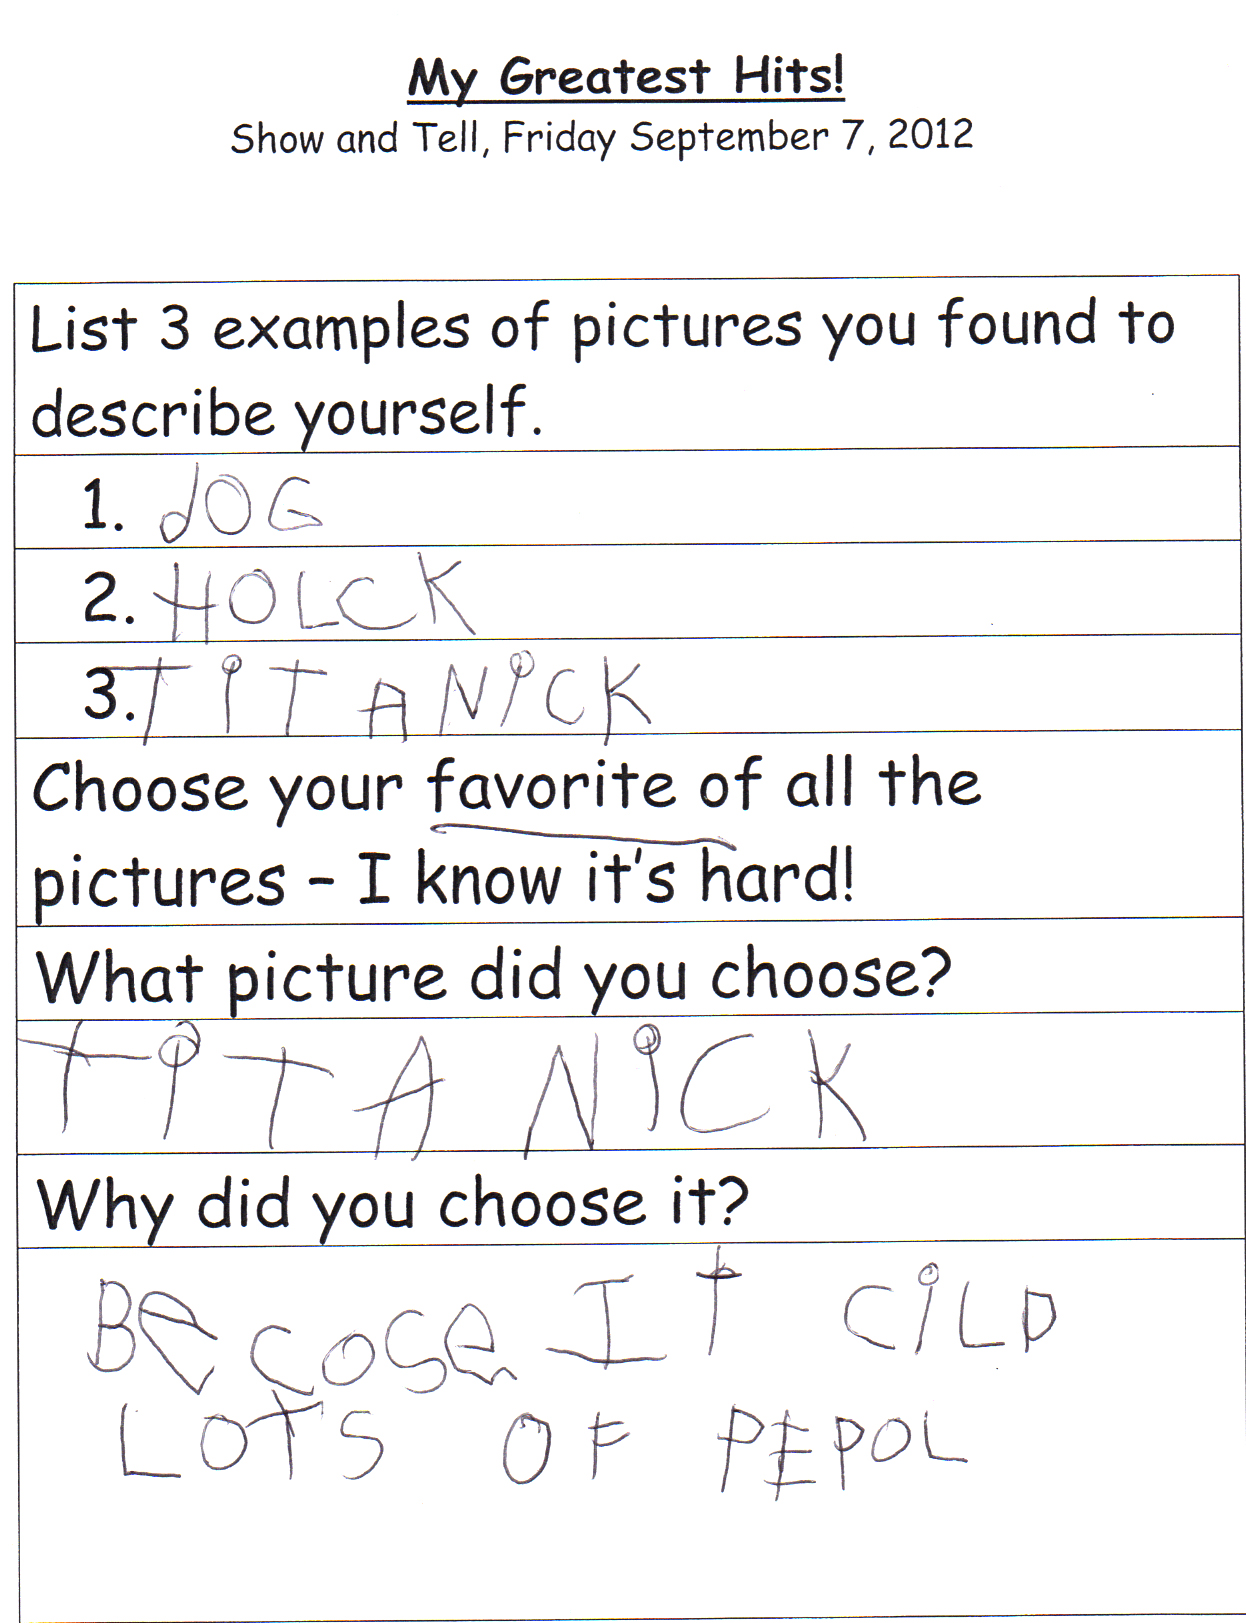 My Greatest Hits!
Show and Tell, Friday September 7, 2012
List 3 examples of pictures you found to
describe yourself.
1. dOG
2. HOLCK
3. TiTANiCK
Choose your favorite of all the
pictures - I know it's hard!
What picture did you choose?
TiTANiCK
Why did you choose it?
BeCOSe IT CiLD
LOTS OF PEPOL